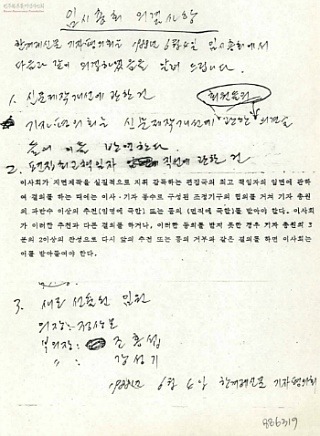 임시총회 의결사항
한겨레신문 기자평의회는 1988년 6월 4일 임시총회에서
다음과 같이 의결하였음을 알려 드립니다.
1. 신문제작개선에 관한 건
기자평의회는 신문제작개선에 관한 의견을
2. 편집최고책임자 직선에 관한 건
이사회가 지면제작을 실질적으로 지휘 감독하는 편집국의 최고 책임자의 임면에 관하
여 결의를 하는 때에는 이사·기자 동수로 구성된 조정기구의 합의를 거쳐 기자 총원
의 과반수 이상의 추천(임명에 국한) 또는 동의(면직에 국한)를 받아야 한다. 이사회
가 이러한 추천과 다른 결의를 하거나, 이러한 동의를 받지 못한 경우 기자 총원의 3
분의 2이상의 찬성으로 다시 앞의 추천 또는 동의 거부와 같은 결의를 하면 이사회는
이를 받아들여야 한다.
3. 새로 선출된 임원
의장:
부의장: 조홍섭
〃: 김성기
1988년 6월 4일 한겨레신문 기자평의회
886319